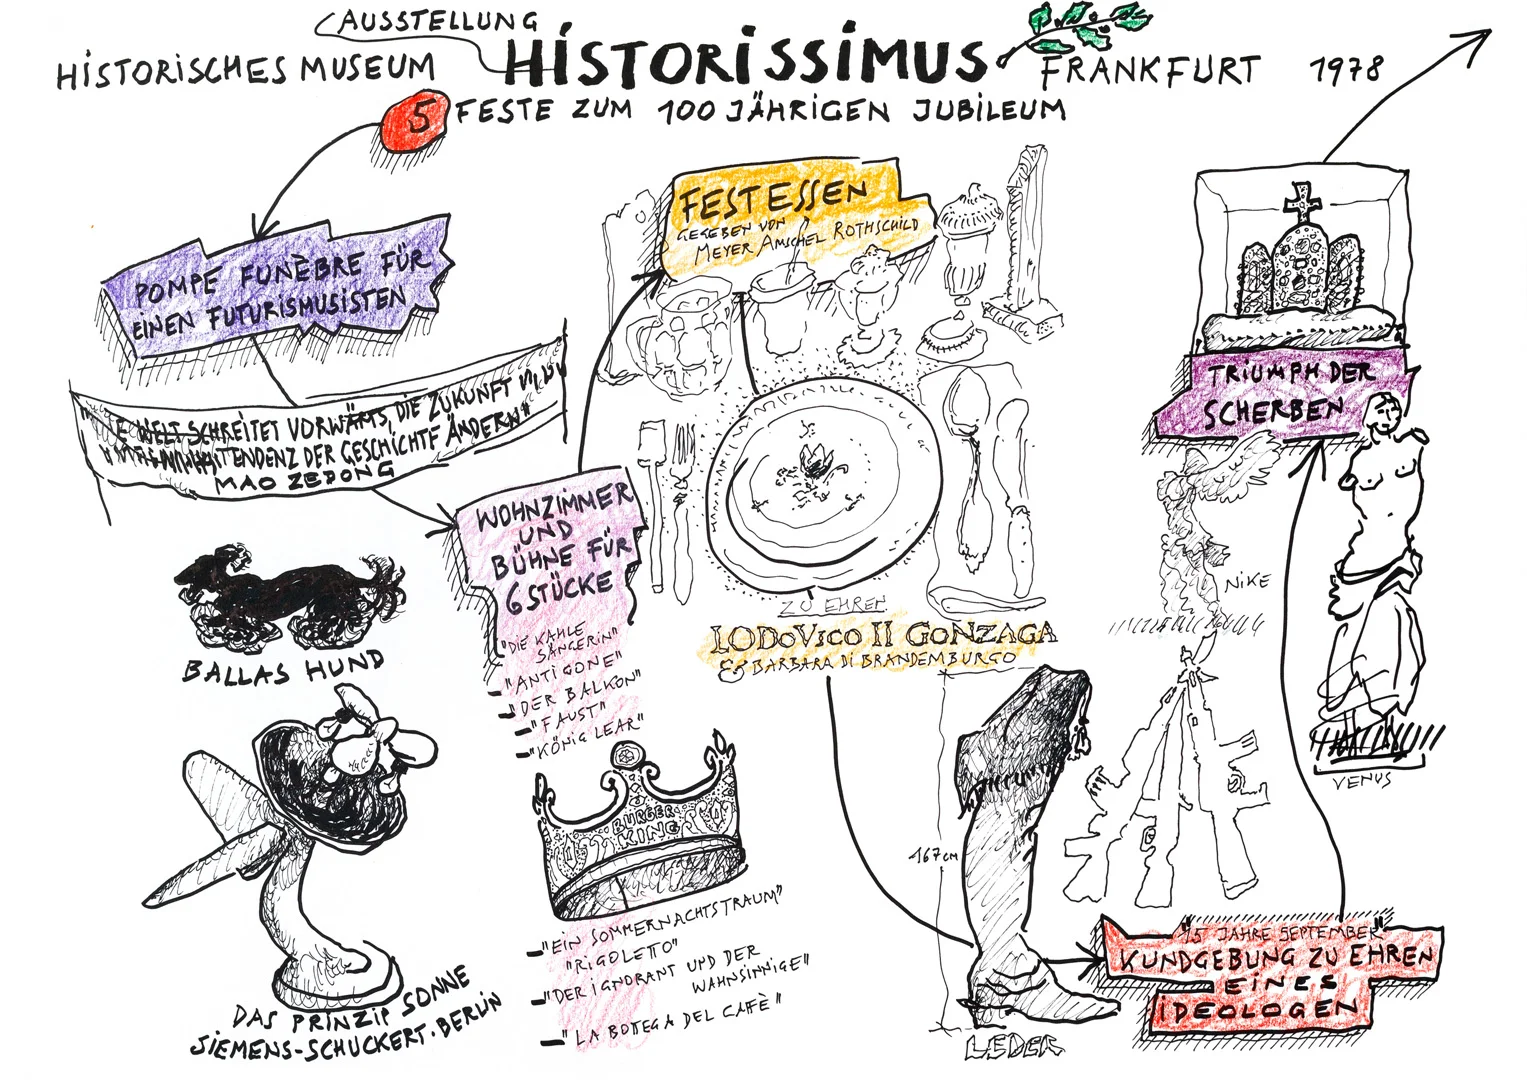 AUSSTELLUNG
HISTORISCHES MUSEUM HISTORISSIMUS FRANKFURT 1978
5 FESTE ZUM 100 JÄHRIGEN JUBILEUM
POMPE FUNÈBRE FÜR
EINEN FUTURISMUSISTEN
WELT SCHREITET VORWÄRTS, DIE ZUKUNFT
TENDENZ DER GESCHICHTE ÄNDERN"
MAO ZEDONG
BALLAS HUND
DAS PRINZIP SONNE
SIEMENS-SCHUCKERT-BERLIN
WOHNZIMMER
UND
BÜHNE FÜR
6 STÜCKE
"DIE KAHLE
SÄNGERIN"
"ANTIGONE"
"DER BALKON"
"FAUST"
"KÖNIG LEAR"
BURGER
KING
"EIN SOMMERNACHTSTRAUM"
"RIGOLETTO"
"DER IGNORANT UND DER
WAHNSINNIGE"
"LA BOTTEGA DEL CAFFÈ"
FESTESSEN
GEGEBEN VON
MEYER AMSCHEL ROTHSCHILD
ZU EHREN
LODOVICO II GONZAGA
& BARBARA DI BRANDEMBURGO
167cm
LEDER
"15 JAHRE SEPTEMBER"
KUNDGEBUNG ZU EHREN
EINES
IDEOLOGEN
TRIUMPH DER
SCHERBEN
NIKE
VENUS